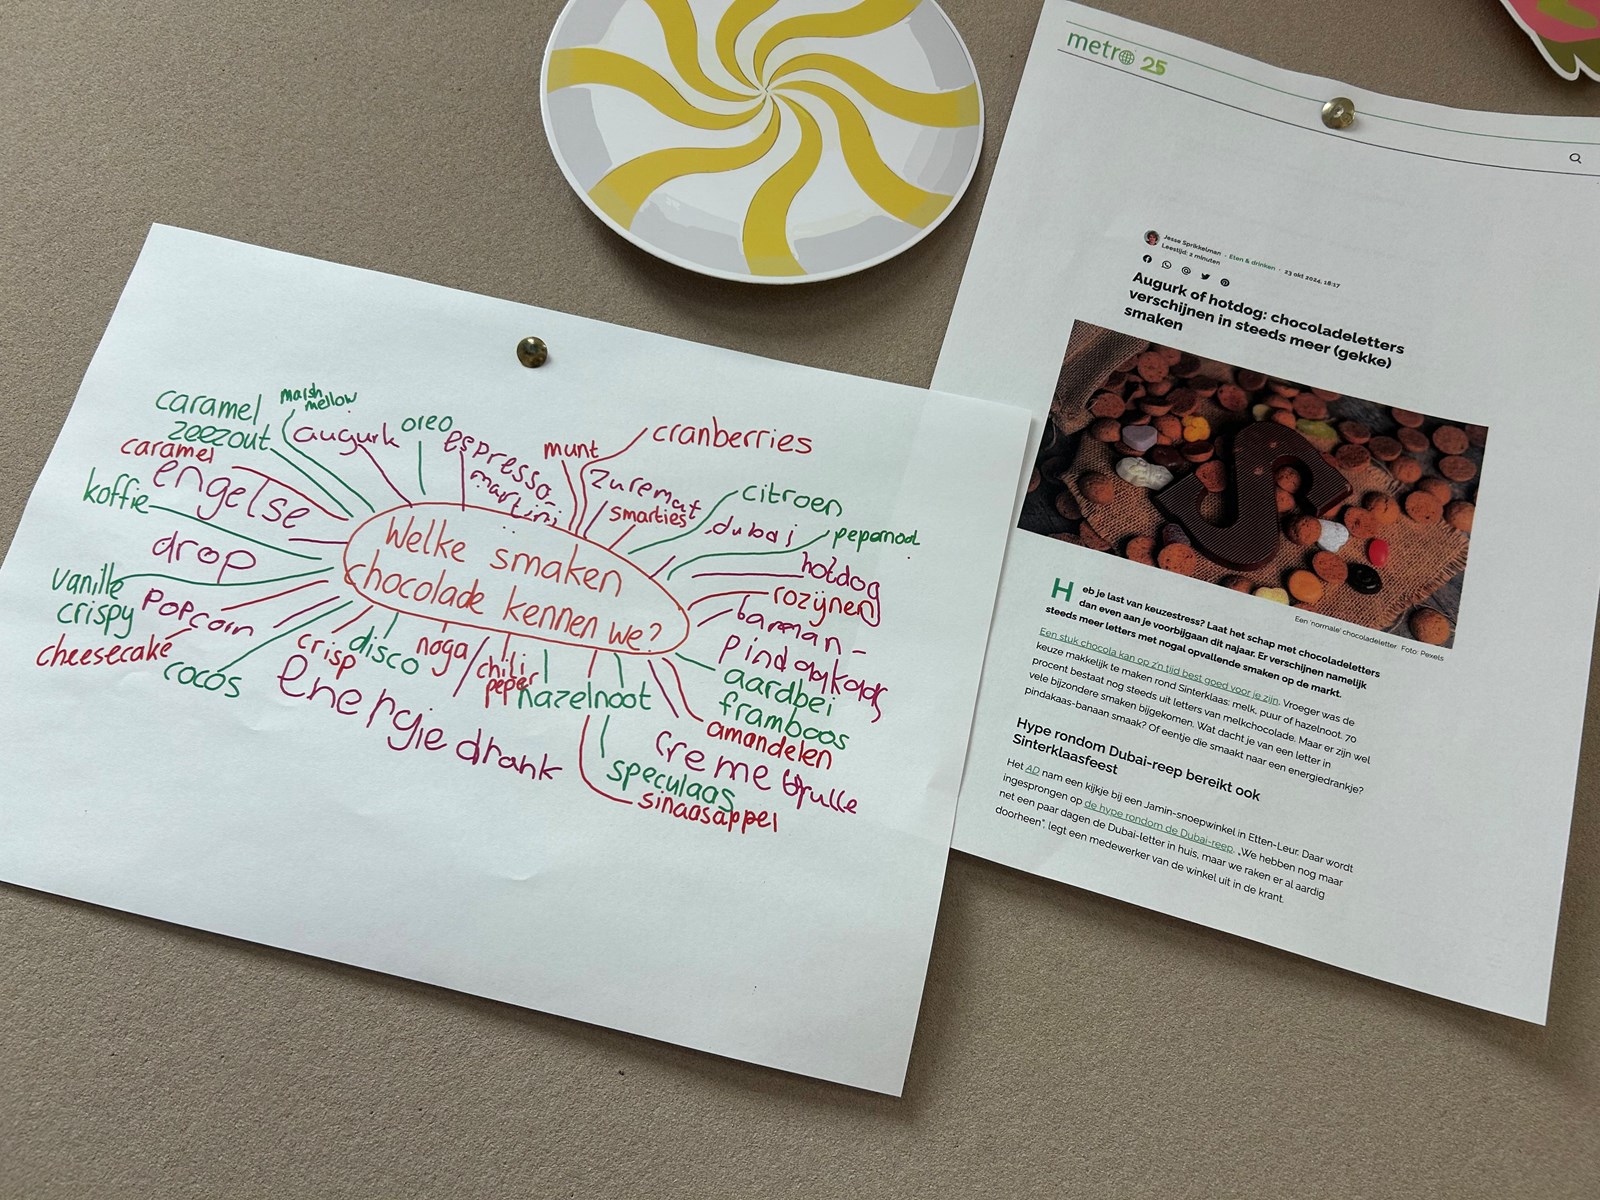 caramel
zeezout
marsh
mellow
augurk
oreo
espresso
martini
munt
cranberries
zuremat
smarties
citroen
dubai
pepernoot
hotdog
rozijnen
banaan-
pindakaas
aardbei
framboos
amandelen
creme brulle
speculaas
sinaasappel
hazelnoot
chili
peper
noga
disco
energie drank
crisp
cocos
cheesecake
popcorn
vanille
crispy
drop
koffie
engelse
caramel
Welke smaken
chocolade kennen we?
metro 25
Jesse Sprikkelman · Eten & drinken · 23 okt 2024, 18:17
Leestijd: 2 minuten
Augurk of hotdog: chocoladeletters
verschijnen in steeds meer (gekke)
smaken
Een 'normale' chocoladeletter. Foto: Pexels
Heb je last van keuzestress? Laat het schap met chocoladeletters
dan even aan je voorbijgaan dit najaar. Er verschijnen namelijk
steeds meer letters met nogal opvallende smaken op de markt.
Een stuk chocola kan op z'n tijd best goed voor je zijn. Vroeger was de
keuze makkelijk te maken rond Sinterklaas: melk, puur of hazelnoot. 70
procent bestaat nog steeds uit letters van melkchocolade. Maar er zijn wel
vele bijzondere smaken bijgekomen. Wat dacht je van een letter in
pindakaas-banaan smaak? Of eentje die smaakt naar een energiedrankje?
Hype rondom Dubai-reep bereikt ook
Sinterklaasfeest
Het AD nam een kijkje bij een Jamin-snoepwinkel in Etten-Leur. Daar wordt
ingesprongen op de hype rondom de Dubai-reep. „We hebben nog maar
net een paar dagen de Dubai-letter in huis, maar we raken er al aardig
doorheen", legt een medewerker van de winkel uit in de krant.